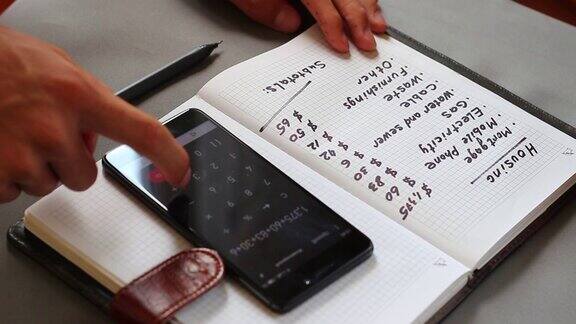 Housing
· Mortgage $1,375
· Mobile Phone $ 60
· Electricity $ 83
· Gas $ 30
· Water and sewer $ 6
· Cable $ 42
· Waste $ 12
· Furnishings $ 50
· Other $ 65
Subtotals:
1,375+60+83+30+6